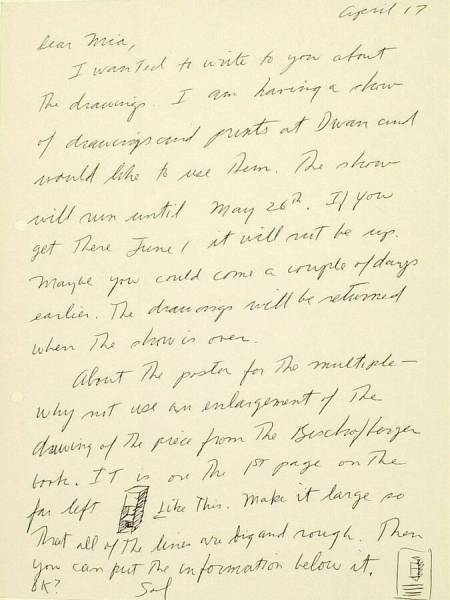 April 17
Dear Mia,
I wanted to write to you about
the drawings. I am having a show
of drawings and prints at Dwan and
would like to use them. The show
will run until May 26th. If you
get there June 1 it will not be up.
Maybe you could come a couple of days
earlier. The drawings will be returned
when the show is over.
About the poster for the multiple –
why not use an enlargement of the
drawing of the piece from the Bischofberger
book. IT is on the 1st page on the
far left Like this. Make it large so
that all of the lines are big and rough. Then
you can put the information below it.
OK? Sol